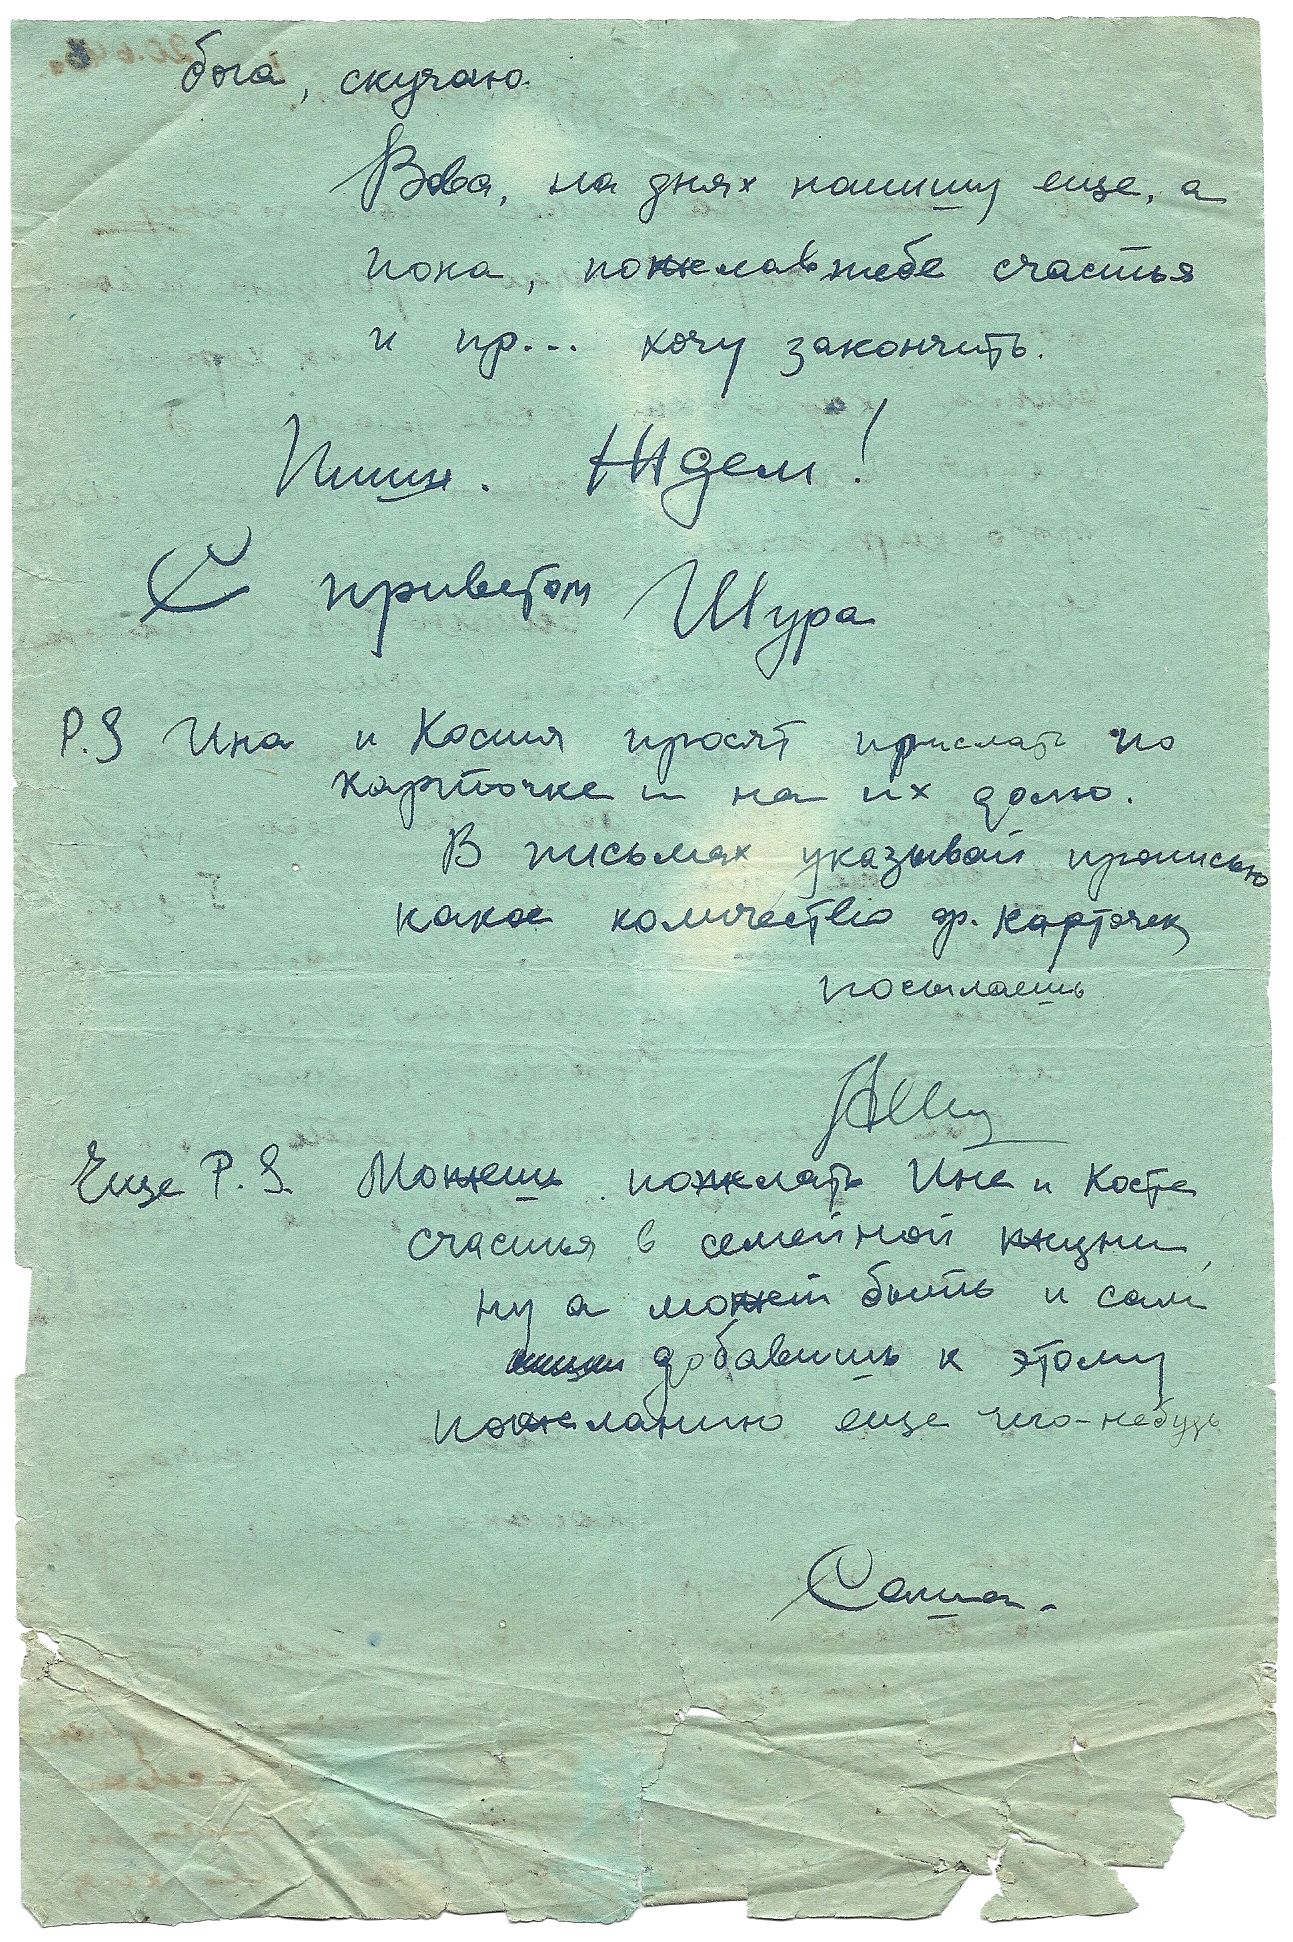 бога, скучаю.
Вова, на днях напишу еще, а
пока, пожелав тебе счастья
и пр... хочу закончить.
Пиши. Ждем!
С приветом Шура
P.S Ина и Костя просят прислать по
карточке и на их долю.
В письмах указывай прописью
какое количество ф. карточек
посылаешь
Еще P.S. Можешь пожелать Ине и Косте
счастья в семейной жизни,
ну а может быть и сам
добавишь к этому
пожеланию еще чего-нибудь
Саша.